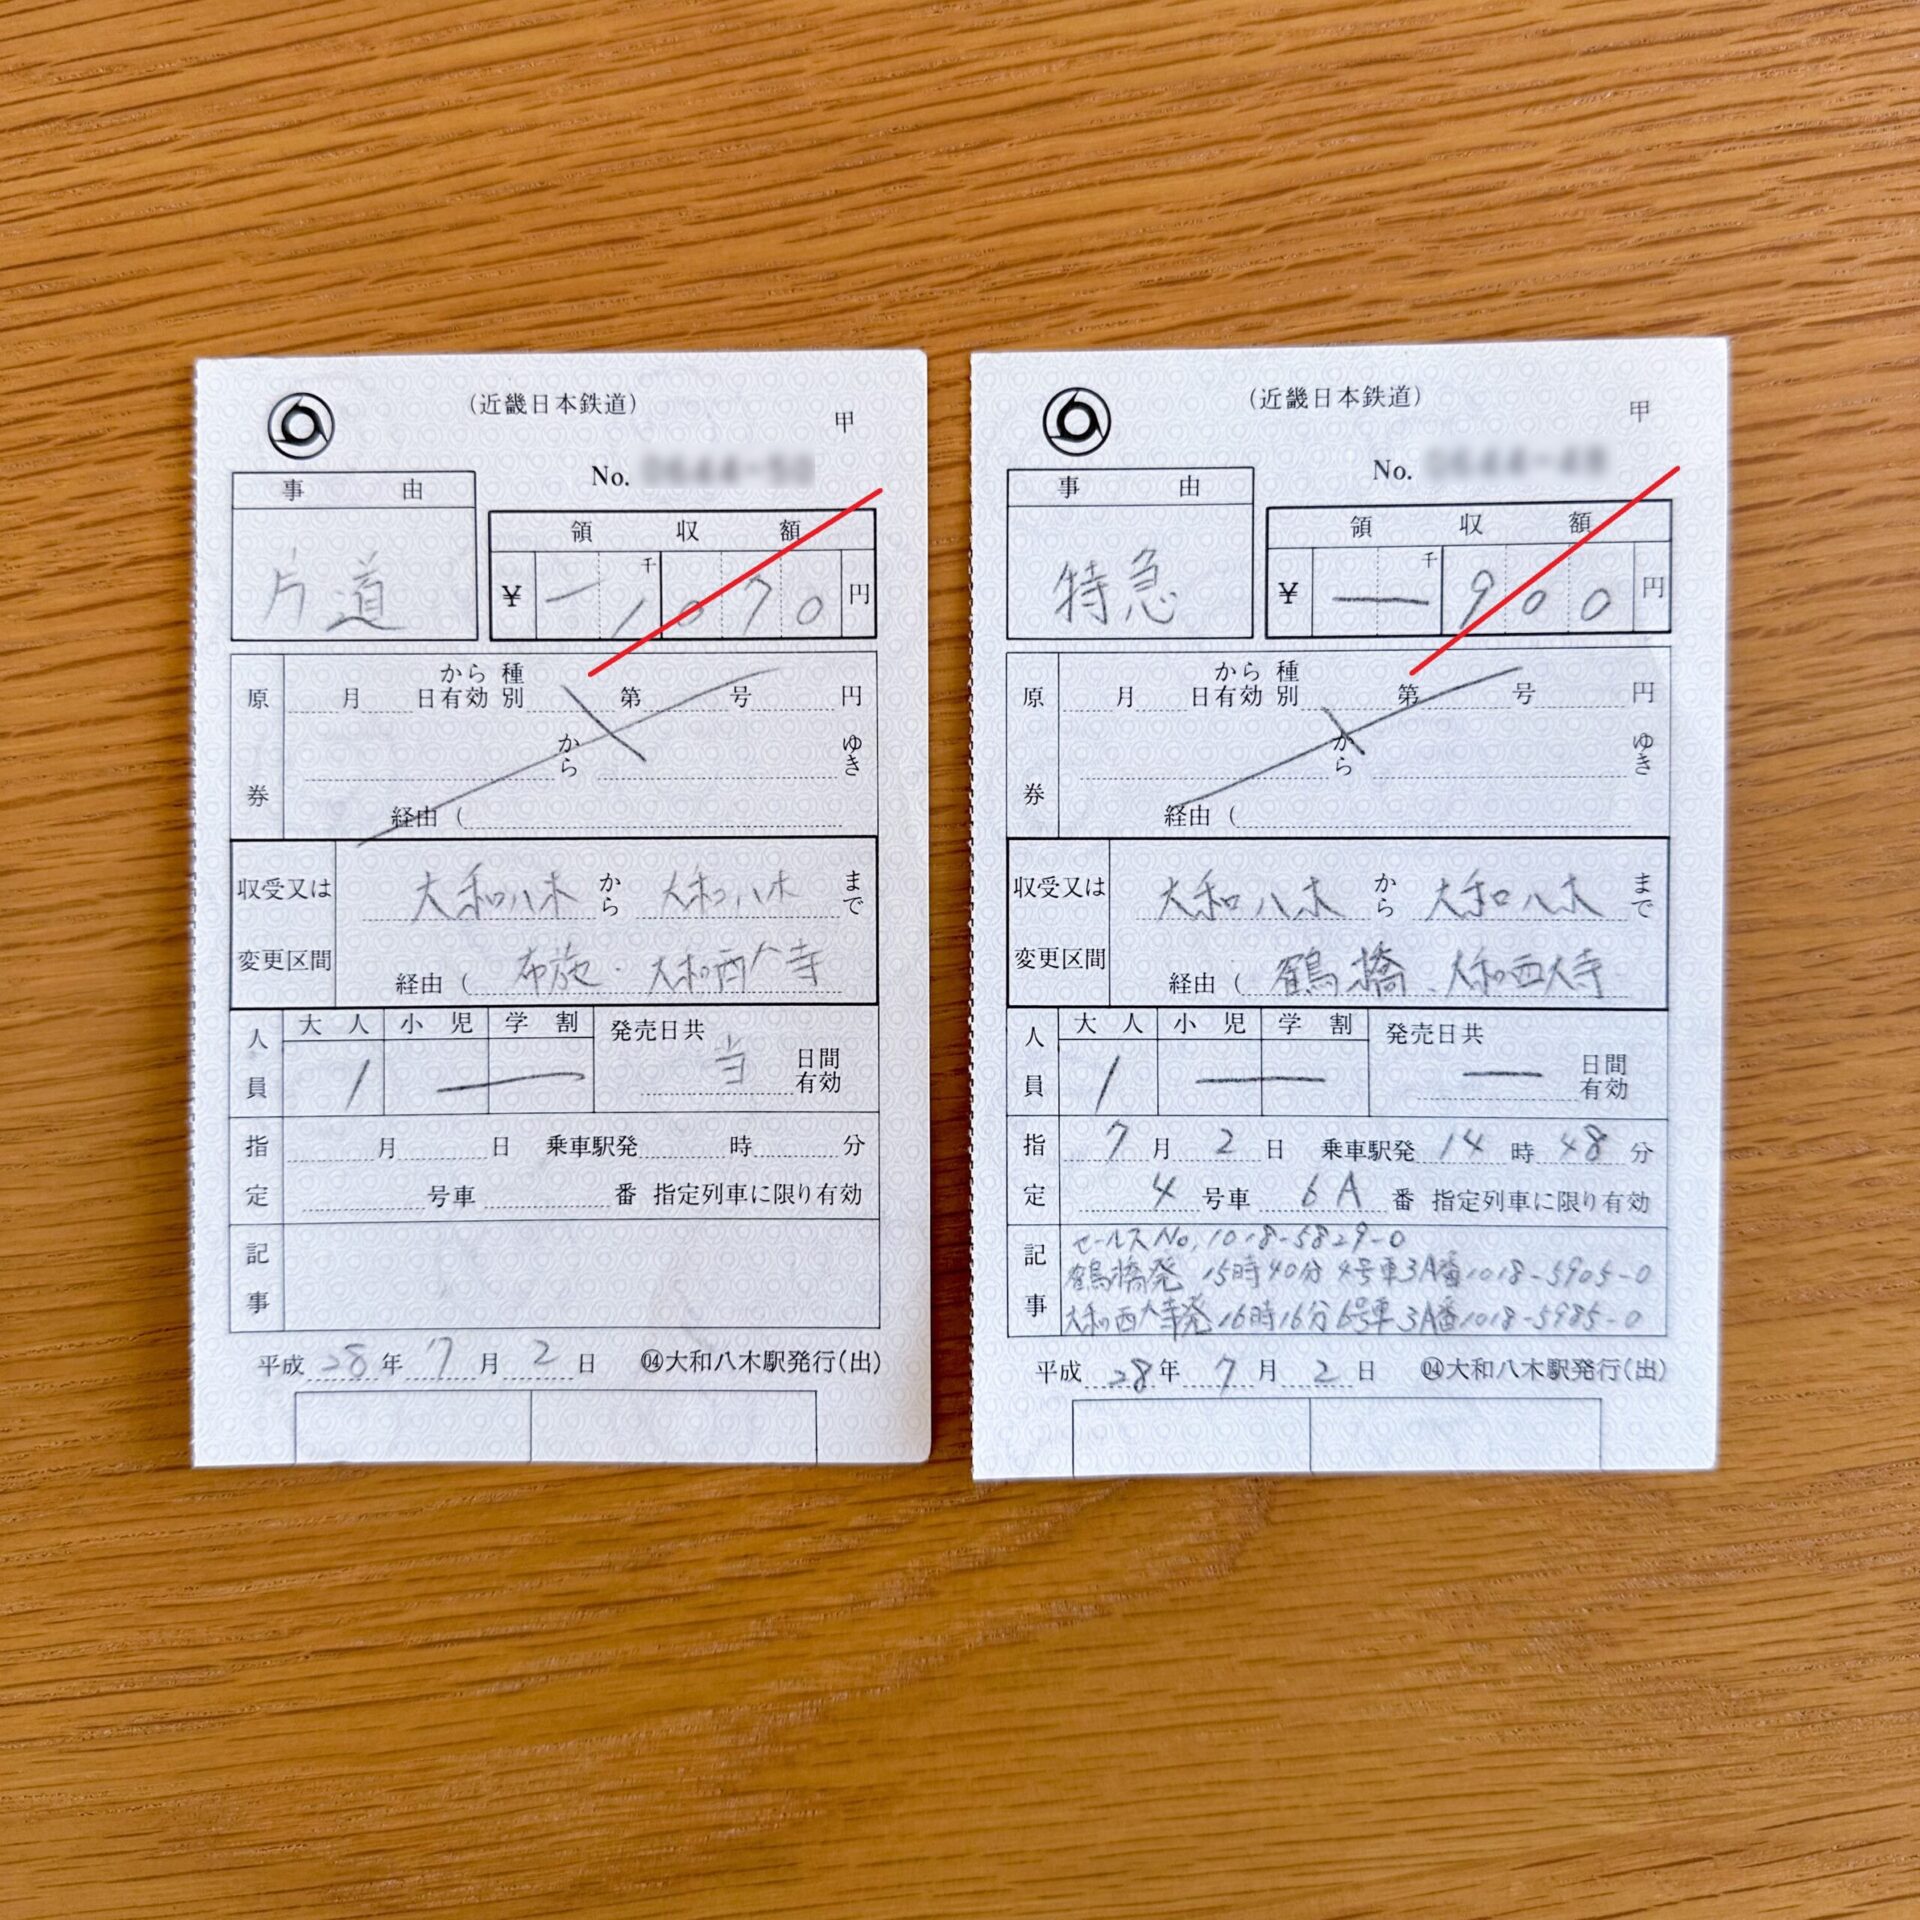 (近畿日本鉄道)
甲
No.
事由
片道
領収額
千
¥ 1070 円
原券
月 日から有効 種別 第 号 円
から ゆき
経由 (
収受又は変更区間
大和八木 から 大和八木 まで
経由 ( 布施・大和西大寺
人員
大人 小児 学割
1
発売日共 当 日間有効
指定
月 日 乗車駅発 時 分
号車 番 指定列車に限り有効
記事
平成28年7月2日 ㉔大和八木駅発行(出)
(近畿日本鉄道)
甲
No.
事由
特急
領収額
千
¥ 900 円
原券
月 日から有効 種別 第 号 円
から ゆき
経由 (
収受又は変更区間
大和八木 から 大和八木 まで
経由 ( 鶴橋、大和西大寺
人員
大人 小児 学割
1
発売日共 日間有効
指定
7月2日 乗車駅発 14時48分
4号車 6A番 指定列車に限り有効
記事
セールスNo, 1018-5829-0
鶴橋発 15時40分 4号車3A番1018-5905-0
大和西大寺発16時16分6号車3A番1018-5985-0
平成28年7月2日 ㉔大和八木駅発行(出)